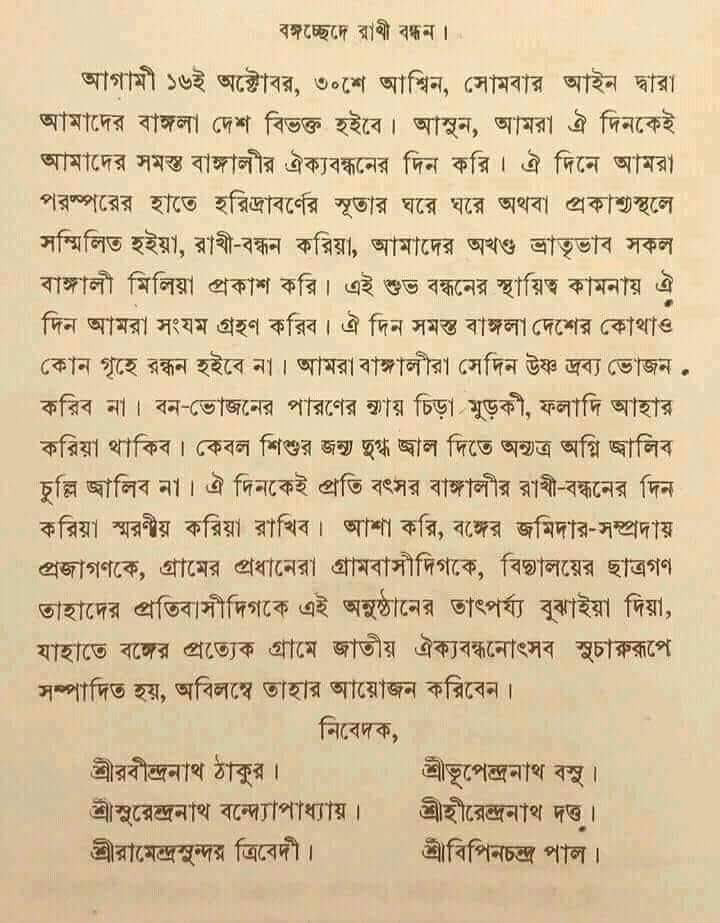 বঙ্গচ্ছেদে রাখী বন্ধন।
আগামী ১৬ই অক্টোবর, ৩০শে আশ্বিন, সোমবার আইন দ্বারা
আমাদের বাঙ্গলা দেশ বিভক্ত হইবে। আসুন, আমরা ঐ দিনকেই
আমাদের সমস্ত বাঙ্গালীর ঐক্যবন্ধনের দিন করি। ঐ দিনে আমরা
পরস্পরের হাতে হরিদ্রাবর্ণের সূতার ঘরে ঘরে অথবা প্রকাশ্যস্থলে
সম্মিলিত হইয়া, রাখী-বন্ধন করিয়া, আমাদের অখণ্ড ভ্রাতৃভাব সকল
বাঙ্গালী মিলিয়া প্রকাশ করি। এই শুভ বন্ধনের স্থায়িত্ব কামনায় ঐ
দিন আমরা সংযম গ্রহণ করিব। ঐ দিন সমস্ত বাঙ্গলা দেশের কোথাও
কোন গৃহে রন্ধন হইবে না। আমরা বাঙ্গালীরা সেদিন উষ্ণ দ্রব্য ভোজন
করিব না। বন-ভোজনের পারণের ন্যায় চিড়া মুড়কী, ফলাদি আহার
করিয়া থাকিব। কেবল শিশুর জন্য দুগ্ধ জ্বাল দিতে অন্যত্র অগ্নি জ্বালিব
চুল্লি জ্বালিব না। ঐ দিনকেই প্রতি বৎসর বাঙ্গালীর রাখী-বন্ধনের দিন
করিয়া স্মরণীয় করিয়া রাখিব। আশা করি, বঙ্গের জমিদার-সম্প্রদায়
প্রজাগণকে, গ্রামের প্রধানেরা গ্রামবাসীদিগকে, বিদ্যালয়ের ছাত্রগণ
তাহাদের প্রতিবাসীদিগকে এই অনুষ্ঠানের তাৎপর্য্য বুঝাইয়া দিয়া,
যাহাতে বঙ্গের প্রত্যেক গ্রামে জাতীয় ঐক্যবন্ধনোৎসব সুচারুরূপে
সম্পাদিত হয়, অবিলম্বে তাহার আয়োজন করিবেন।
নিবেদক,
শ্রীরবীন্দ্রনাথ ঠাকুর। শ্রীভূপেন্দ্রনাথ বসু।
শ্রীসুরেন্দ্রনাথ বন্দ্যোপাধ্যায়। শ্রীহীরেন্দ্রনাথ দত্ত।
শ্রীরামেন্দ্রসুন্দর ত্রিবেদী। শ্রীবিপিনচন্দ্র পাল।